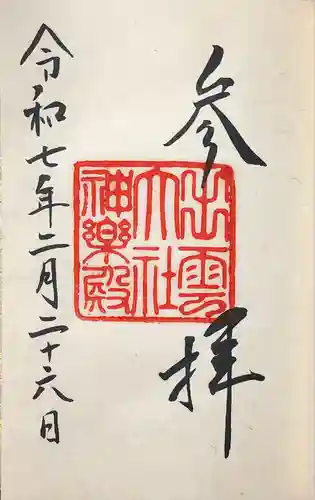 参拝
出雲
大社
神樂殿
令和七年二月二十六日